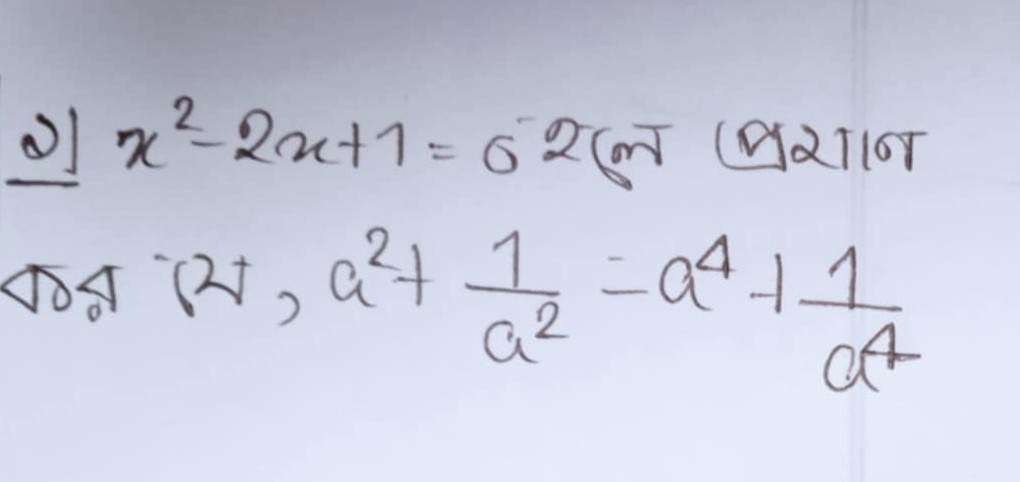 ২| x² - 2x + 1 = 0 হলে প্রমাণ
কর যে, a² + 1/a² = a⁴ + 1/a⁴